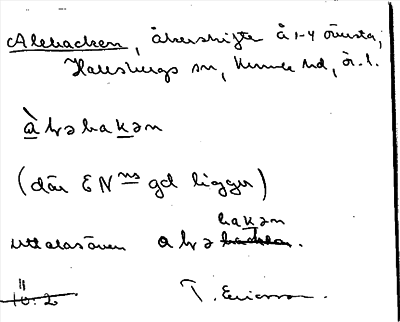 Alebacken, åkerskifte å 1-4 Örusta,
Hallsbergs sn, Kumla hd, ör. l.
àlɘbakən
(där EN ns gd ligger)
uttalas även alɘ bakən.
11
10.2 T. Ericsson.